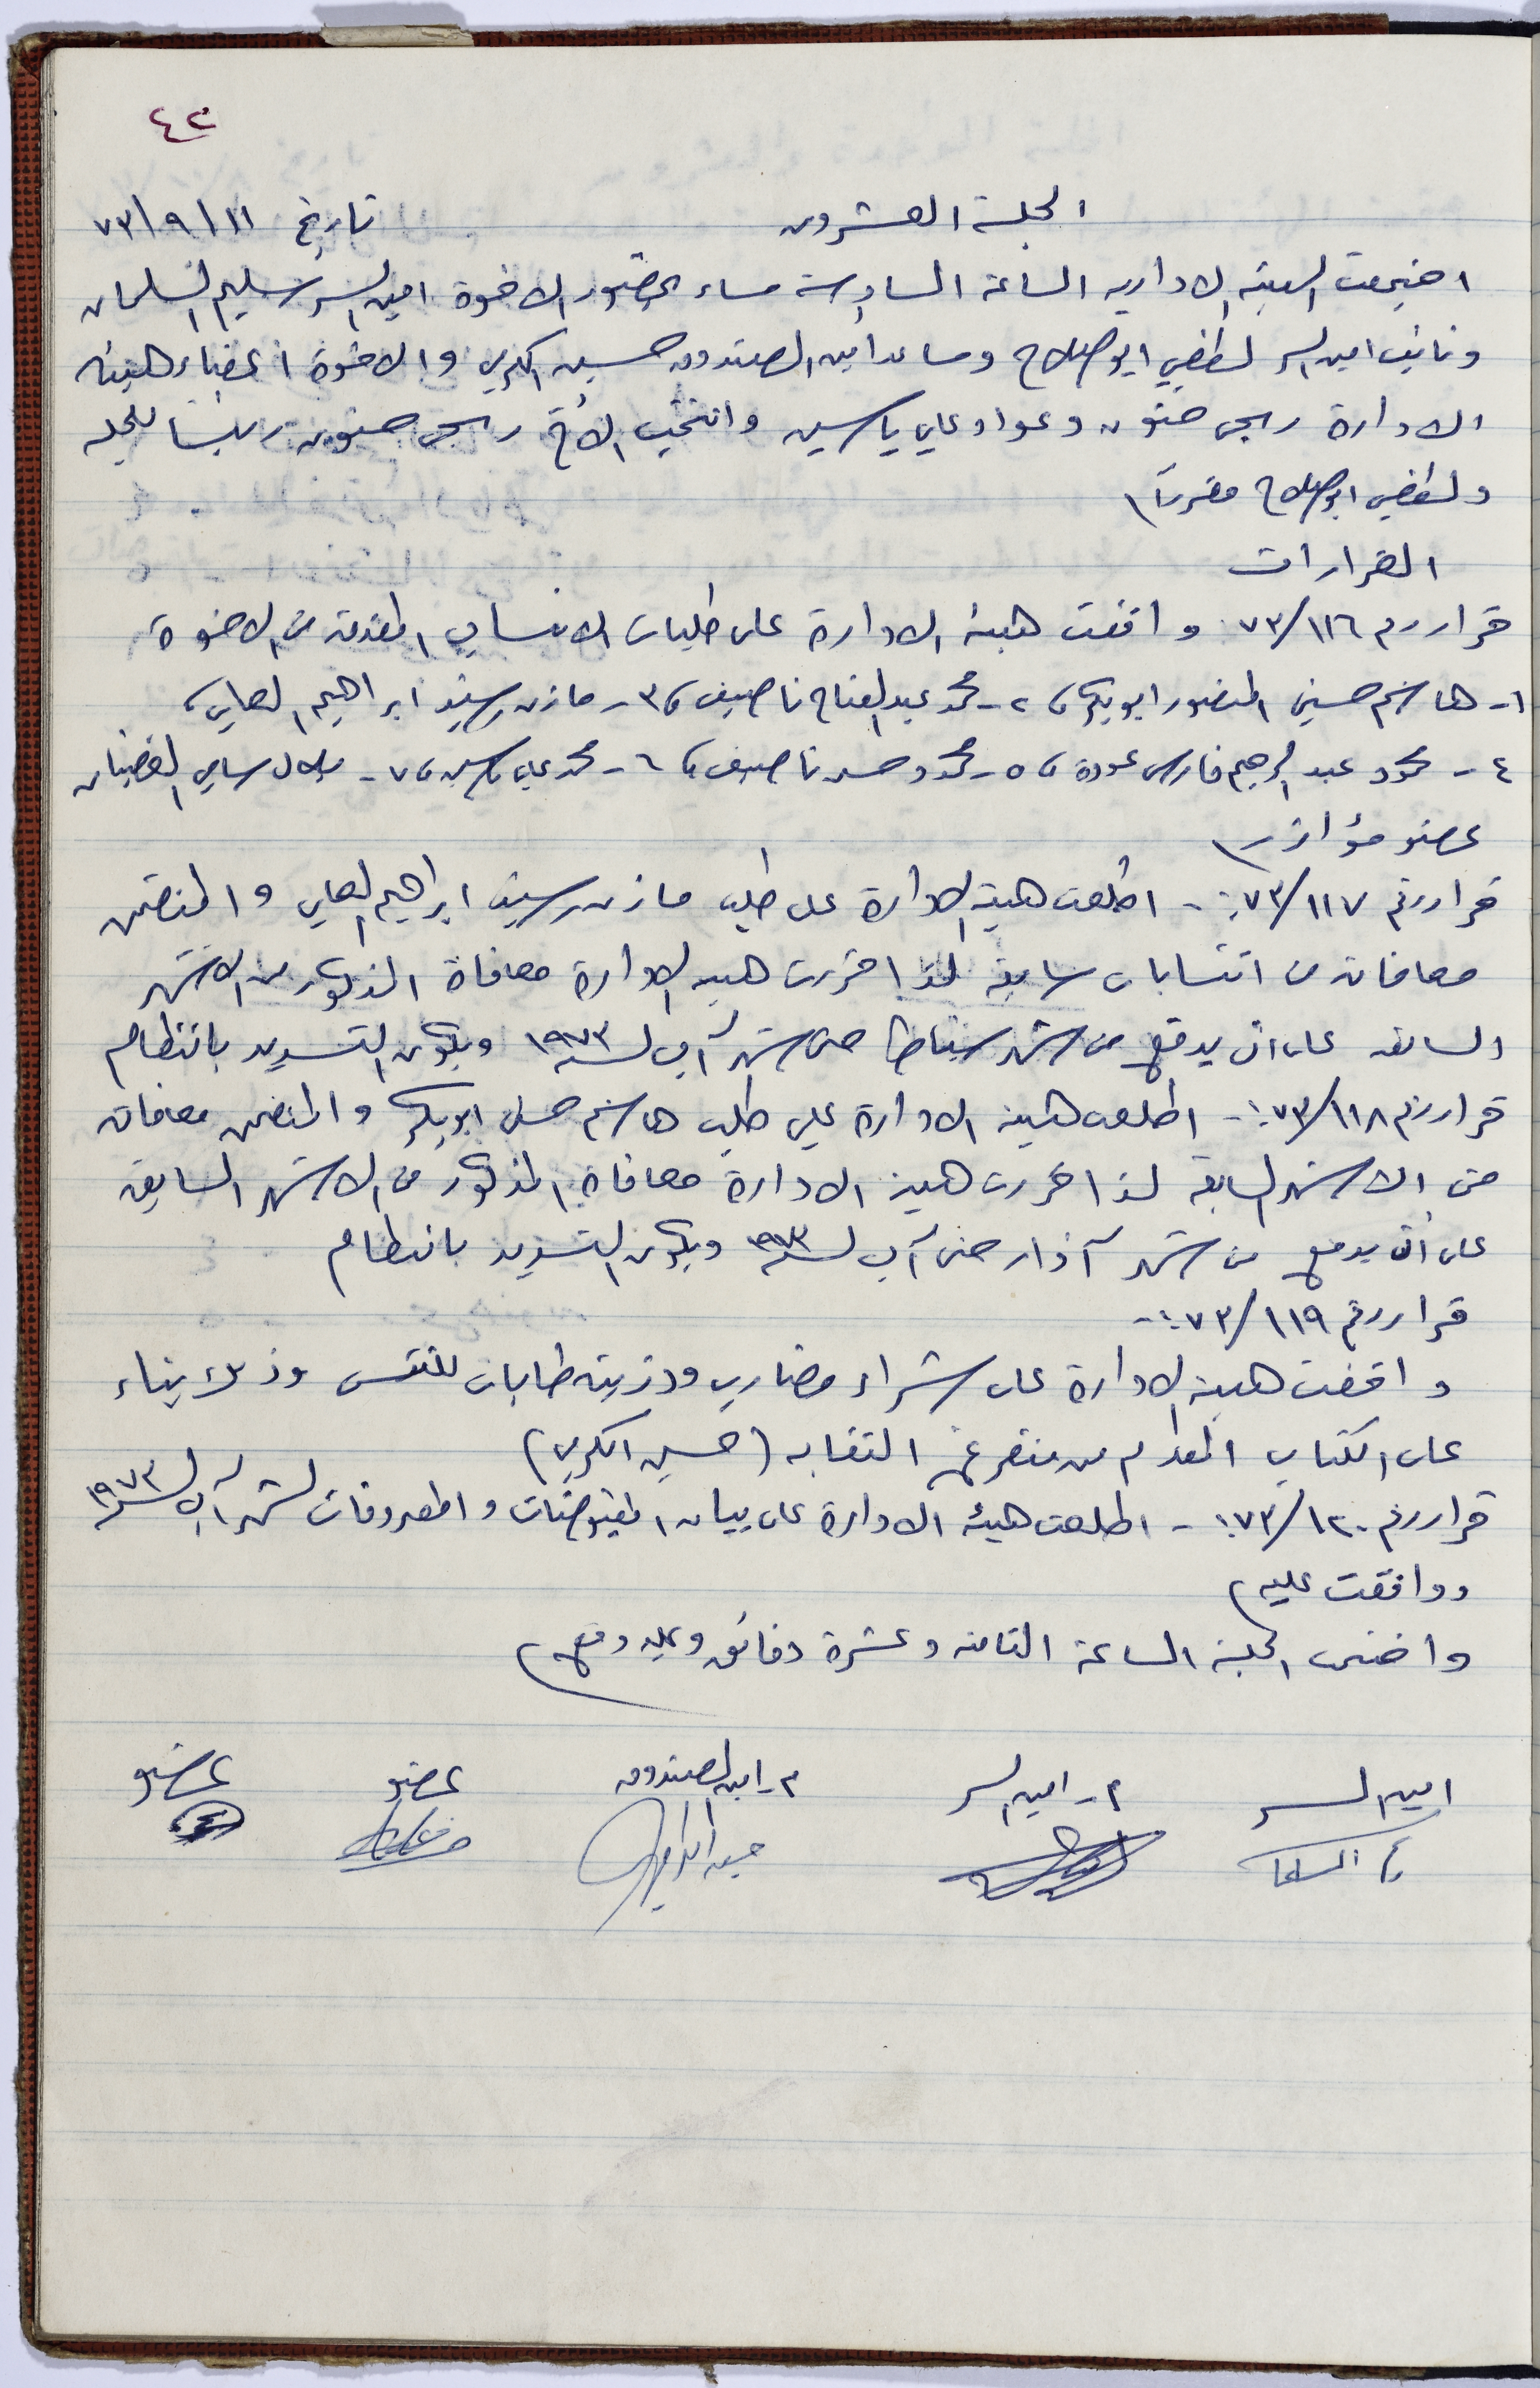 ٤٢
الجلسة العشرون تاريخ ١١ / ٩ / ٧٣
اجتمعت الهيئة الادارية الساعة السادسة مساء بحضور الاخوة امين السر سليم السلمان
ونائب امين السر لطفي ابو صلاح ومساعد امين الصندوق حسين الكردي والاخوة اعضاء هيئة
الادارة ربحي حنون وعواد علي ياسين وانتخب الأخ ربحي حنون رئيسا للجلسة
ولطفي ابو صلاح مقرراً
القرارات
قرار رقم ٧٣/١١٦ وافقت هيئة الادارة على طلبات الانتساب المقدمة من الاخوة
١- هاشم حسين المنصور ابو بكر، ٢- محمد عبد الفتاح ناصيف، ٣- مازن رشيد ابراهيم العلي،
٤- محمود عبد الرحيم فارس عودة، ٥- محمود حسن ناصيف، ٦- محمد علي ياسين، ٧- بلال سامي الغضبان
عضو مؤازر
قرار رقم ٧٣/١١٧:- اطلعت هيئة الادارة على طلب مازن رشيد ابراهيم العلي والمتضمن
معافاته من انتسابات سابقة لذا قررت هيئة الادارة معافاة المذكور من الاشهر
السابقة على ان يدفع من شهر شباط حتى شهر آب لسنة ١٩٧٣ ويكون التسديد بانتظام
قرار رقم ٧٣/١١٨:- اطلعت هيئة الادارة على طلب هاشم حسين ابو بكر والمتضمن معافاته
من الاشهر السابقة لذا قررت هيئة الادارة معافاة المذكور من الاشهر السابقة
على أن يدفع من شهر آذار حتى آب لسنة ١٩٧٣ ويكون التسديد بانتظام
قرار رقم ٧٣/١١٩:-
وافقت هيئة الادارة على شراء مضارب ودزينة طابات للتنس وذلك بناء
على الكتاب المقدم من متفرغ النقابة (حسين الكردي)
قرار رقم ٧٣/١٢٠:- اطلعت هيئة الادارة على بيان المقبوضات والمصروفات لشهر آب لسنة ١٩٧٣
ووافقت عليه
واختتمت الجلسة الساعة الثامنة وعشرة دقائق وعليه وقع
امين السر م- امين السر م- امين الصندوق عضو عضو